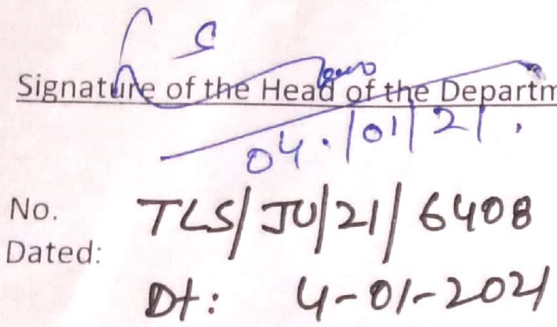 Signature of the Head of the Departm
04./01/21.
No. TLS/JU/21/6408
Dated:
Dt: 4-01-2021